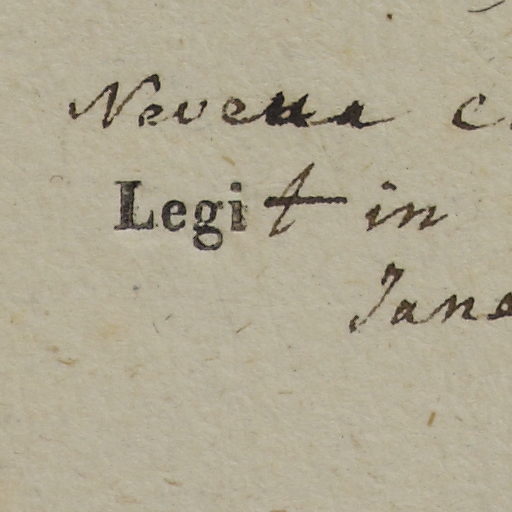 Nevena c
Legit in
Jane